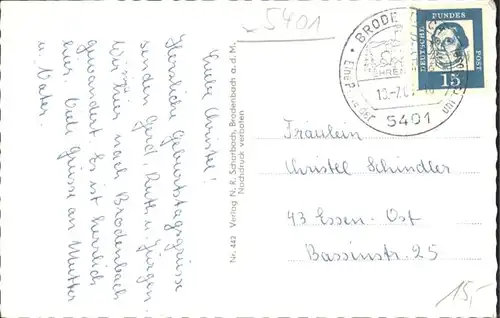 5401
Liebe Christel!
Herzliche Geburtstagsgrüsse
senden Gerd, Ruth u. Jürgen.
Wir sind hier nach Brodenbach
gewandert. Es ist herrlich
hier. Viele Grüsse an Mutter
u. Vater.
Nr. 442 Verlag N. R. Scharbach, Brodenbach a. d. M.
Nachdruck verboten
BRODE
5401
DEUTSCHE BUNDES POST
15
Fräulein
Christel Schindler
43 Essen-Ost
Bassinstr. 25
15,-